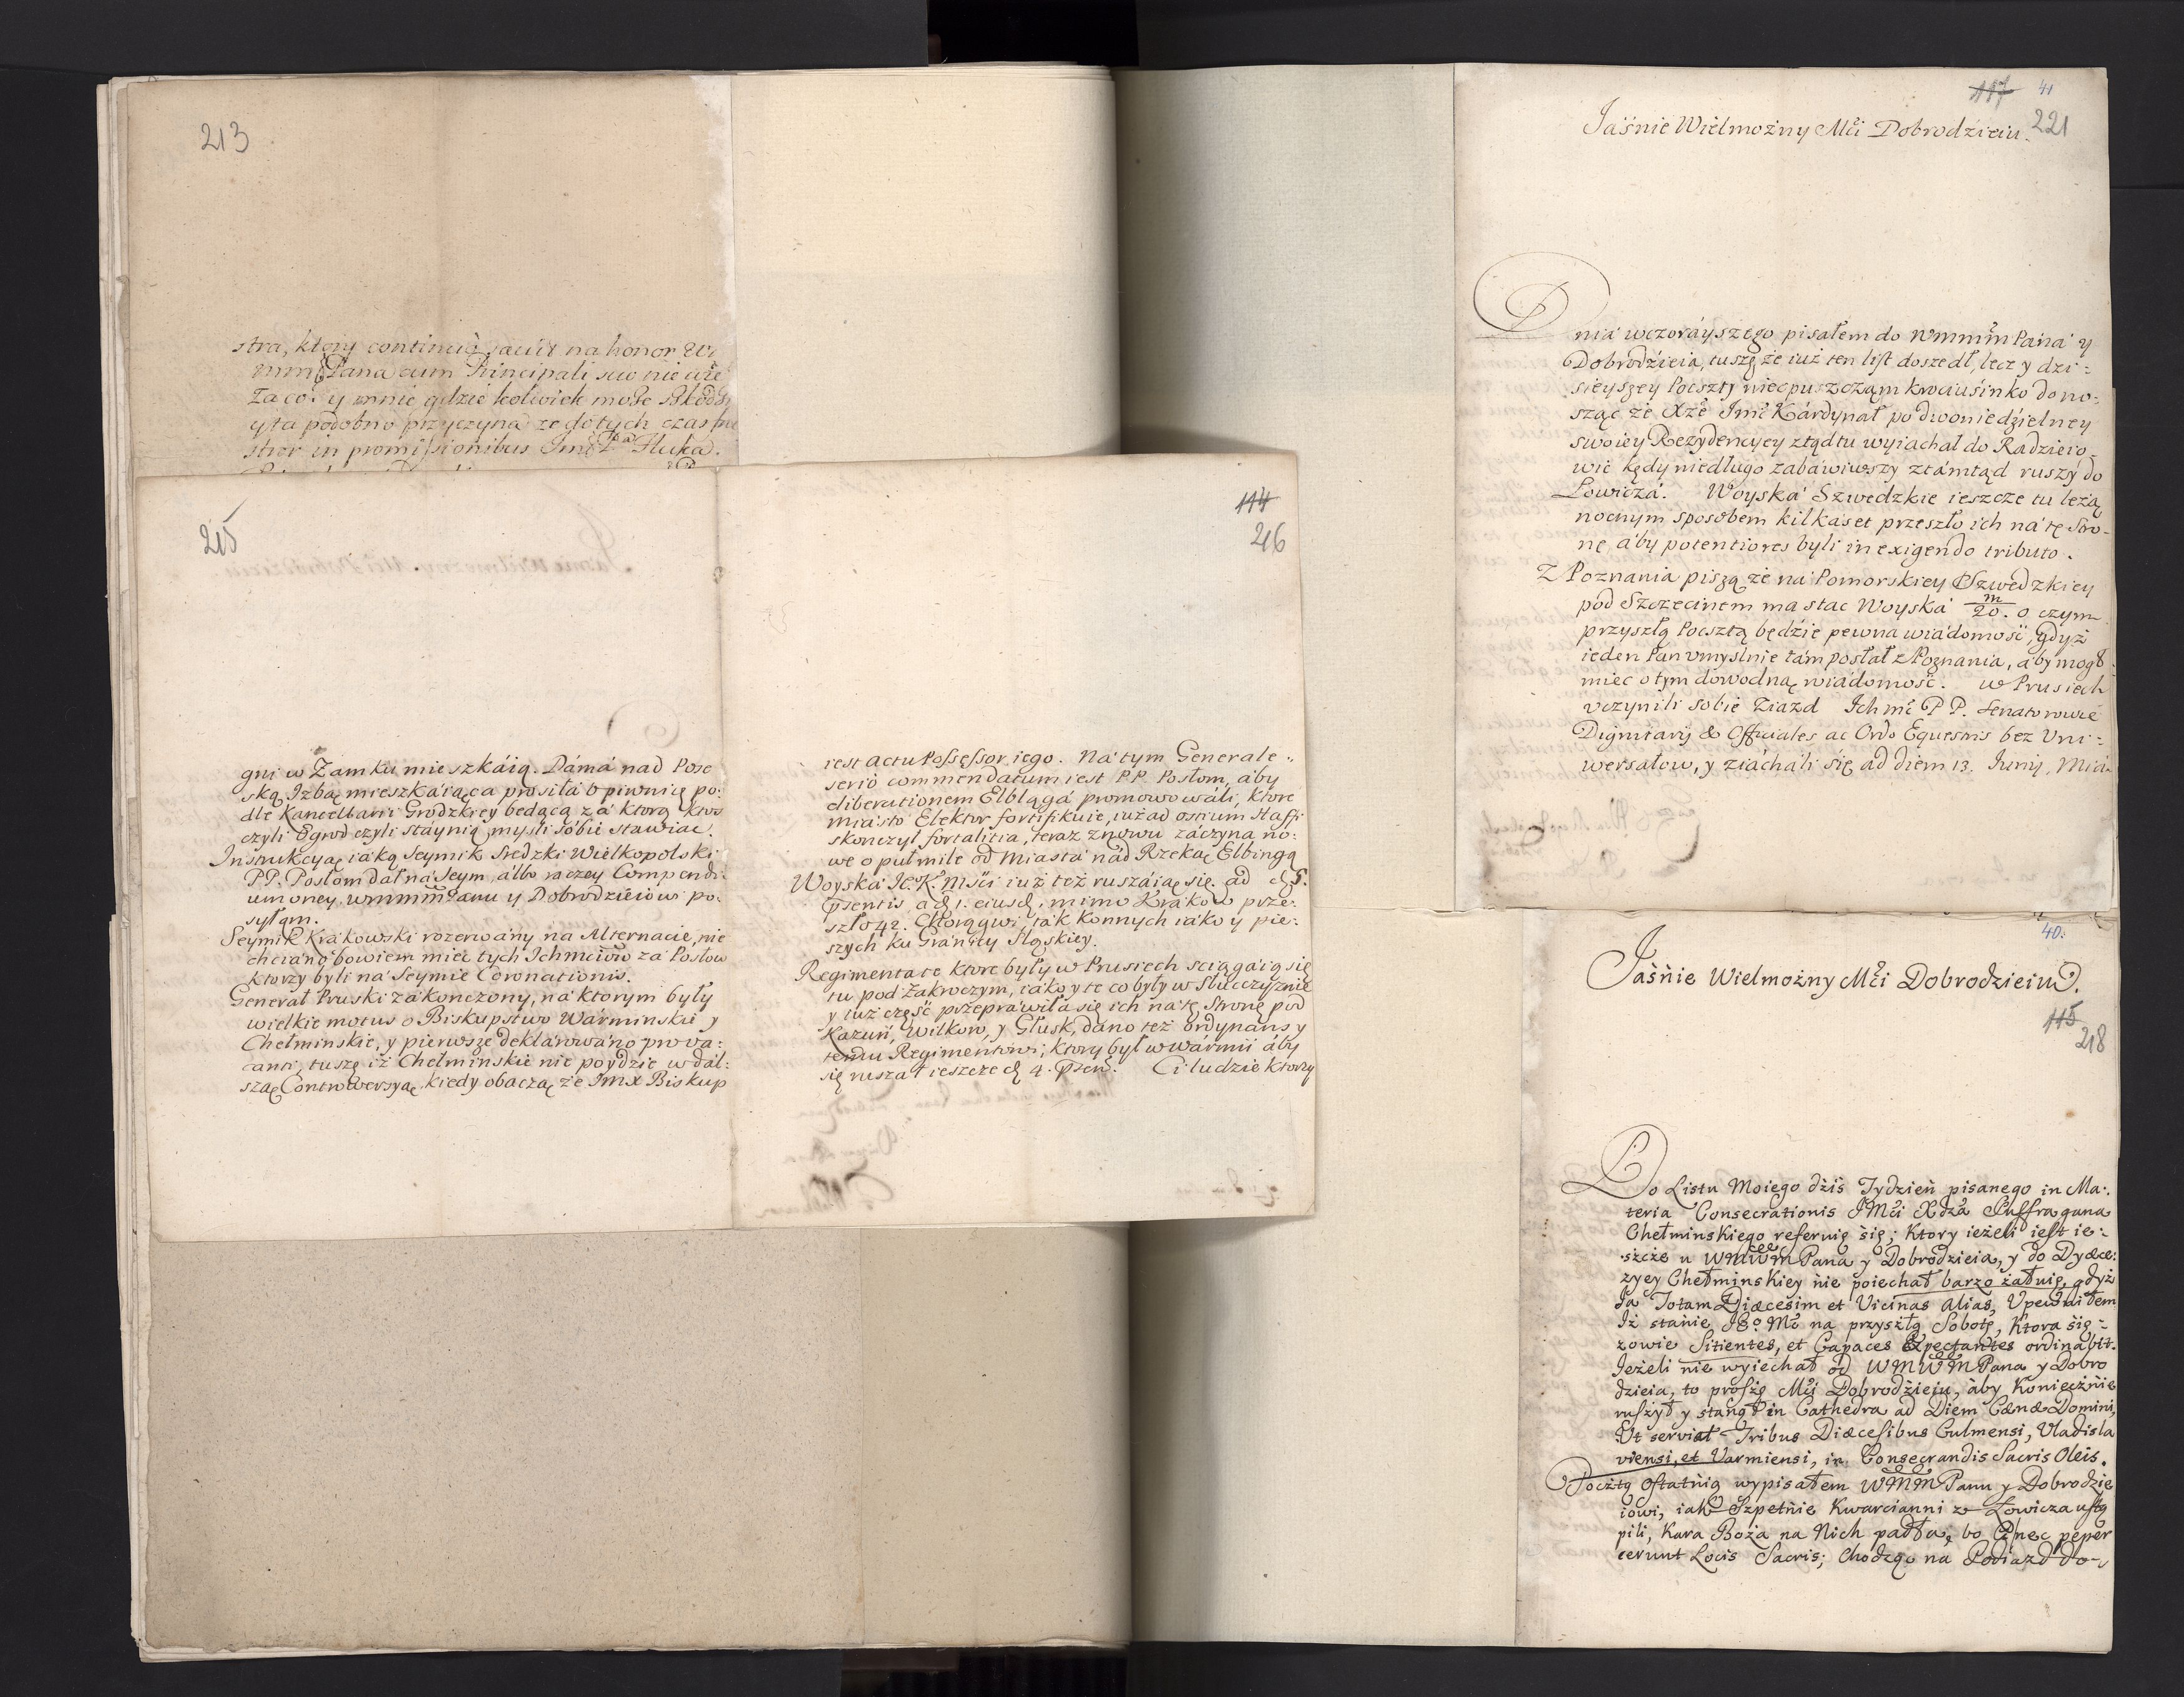 213
stra, ktory continuò facit na honor
mm Pana cum Principali suo nie
Zaco y mnie gdzie kolwiek może
y ta podobno przyczyna ze dotych czas
in promissionibus Imć Pa Huka.
215
gni w Zamku mieszkáią. Dámá nad Pose
ską Izbą mieszkáiąca prosiłá o piwnicę po:
dle Kancellarii Grodzkiey bedącą zá ktorą
czyli Ogrod czyli stáynią mysli sobie stáwiac.
Instrukcyą iáką Seymik Sredzki Wielkopolski
PP. Posłom dał ná Seym, álbo raczey Compendi:
um oney wmmm Panu y Dobrodzieiowi po:
syłąm.
Seymik Krákowski rozerwány na Alternacie, nie
chciáno bowiem mieć tych Ichmciow zá Posłow
ktorzy byli ná Seymie Coronationis.
Generał Pruski zákonczony, ná ktorym były
wielkie motus o Biskupstwo Wárminskie y
Chełminskie, y pierwsze deklárowáno pro va:
canti, tuszę iż Chełminskie nie poydzie w dál:
szą Controwersyą, kiedy obaczą że Imx Biskup
114
216
iest actu Possessor iego. Ná tym Generale
seriò commendatum iest PP. Posłom, áby
eliberationem Elblągá promowowáli, ktore
Miásto Elektor fortifikuie, iuż ad ostium Haffi
skonczył fortalitia, teraz znowu záczyna no:
we o puł mile od Miástá nád Rzeką Elbingą
Woyská Je. K. Msci iuż też ruszáią się. ad 5.
psentis a 1. eiusd, mimo Krákow prze:
szło 42. Chorągwi, ták konnych iáko y pie:
szych ku Gránicy Sląskiey.
Regimenta te ktore były w Prusiech sciągáią się
tu pod Zákroczym, iáko y te co były w
y iuż część przepráwiłá się ich ná tę Stronę pod
Kazuń, Wilkow, y Głusk, dano też ordynans y
temu Regimentowi, ktory był w Wármii áby
się ruszał ieszcze 4. psen. Ci ludzie ktorzy
117 41
Jáśnie Wielmożny Mći Dobrodzieiu. 221
Dniá wczoráyszego pisałem do wmmm Páná y
Dobrodźieia, tuszę że iuż ten list doszedł, lecz y dzi:
sieyszey Poczty nieopuszczam krociusinko dono:
sząc że Xże Imć Kárdynał po dwoniedźielney
swoiey Rezydencyey ztądtu wyiachał do Rádzieio:
wic kędy niedługo zabáwiwszy ztámtąd ruszy do
Łowiczá. Woyská Szwedzkie ieszcze tu leżą
nocnym sposobem kilkáset przeszło ich ná tę Stro-
nę áby potentiores byli in exigendo tributo.
Z Poznania piszą że ná Pomorskiey Szwedzkiey
pod Szczecinem ma stac Woyská m/20. o czym
przyszłą Pocztą będzie pewna wiádomość, gdyż
ieden Pan vmyslnie tám posłał z Poznania, áby mogł
miec o tym dowodną wiádomość. w Prusiech
vczynili sobie Ziazd Ichmć PP. Senatorowie
Dignitarij & Officiales ac Ordo Equestris bez Vni:
wersałow, y ziácháli się ad diem 13. Iunij, Miá-
40.
Jaśńie Wielmożny Mći Dobrodzieiu.
115
218
Do Listu Moiego dźiś Tydzień pisanego in Ma:
teria Consecrationis JMći Xdza Suffragana
Chełminskiego referuię śię; Ktory ieżeli iest ie:
szcże u WMWM Pana y Dobrodzieia, y do Dyæce:
zyey Chełminskiey nie poiechał barzo żałuię, gdyż
Ja Totam Diæcesim et Vicinas alias, Upewniłem
Iż stańie Jego Mć na przyszłą Sobotę, Ktora śię
zowie Sitientes, et Capaces Expectantes ordinabit.
Jeżeli nie wyiechał od WMWM Pana y Dobro
dzieia, to proszę Mći Dobrodzieiu, aby Koniecżńie
ruszył y stanął in Cathedra ad Diem Cænæ Domini,
Ut serviat Tribus Diæcesibus Culmensi, Vladisla
viensi, et Varmiensi, in Consecrandis Sacris Oleis.
Pocztą ostatńią wypisałem WMM Panu y Dobrodzie
iowi, iak Szpetńie Kwarcianni z Łowicza ustą
pili, Kara Boża na Nich padła, bo nec peper
cerunt Locis Sacris; Chodząc na Podiazd do-